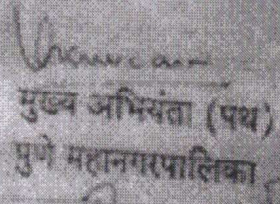 मुख्य अभियंता (पथ)
पुणे महानगरपालिका